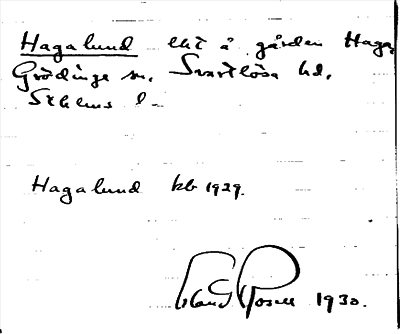 Hagalund lht å gården Haga
Grödinge sn. Svartlösa hd.
Sthlms l-
Hagalund kb 1929.
1930.